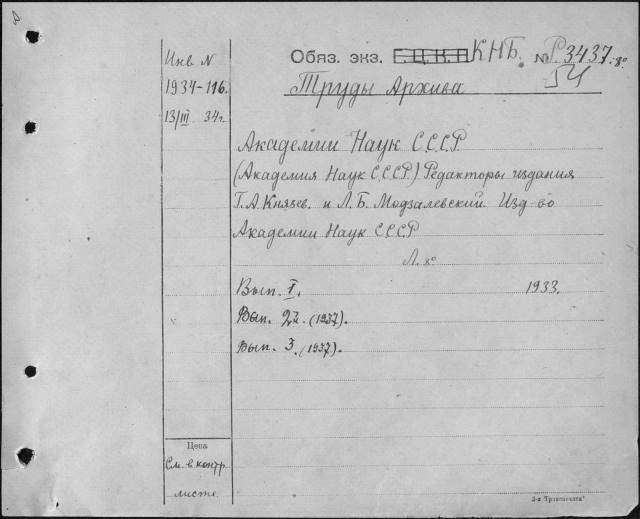 Инв N
1934-116.
13/III 34г.
Обяз. экз. Г.Ц.К.П КНБ. № Р3437.8º
54
Труды Архива
Академии Наук С.С.С.Р
(Академия Наук С.С.С.Р.) Редакторы издания
Г.А.Князев. и Л.Б. Модзалевский. Изд-во
Академии Наук С.С.С.Р
Л. 8º
Вып. I. 1933.
Вып. 2. (1937).
Вып. 3. (1937).
Цена
См. в контр.
листе.